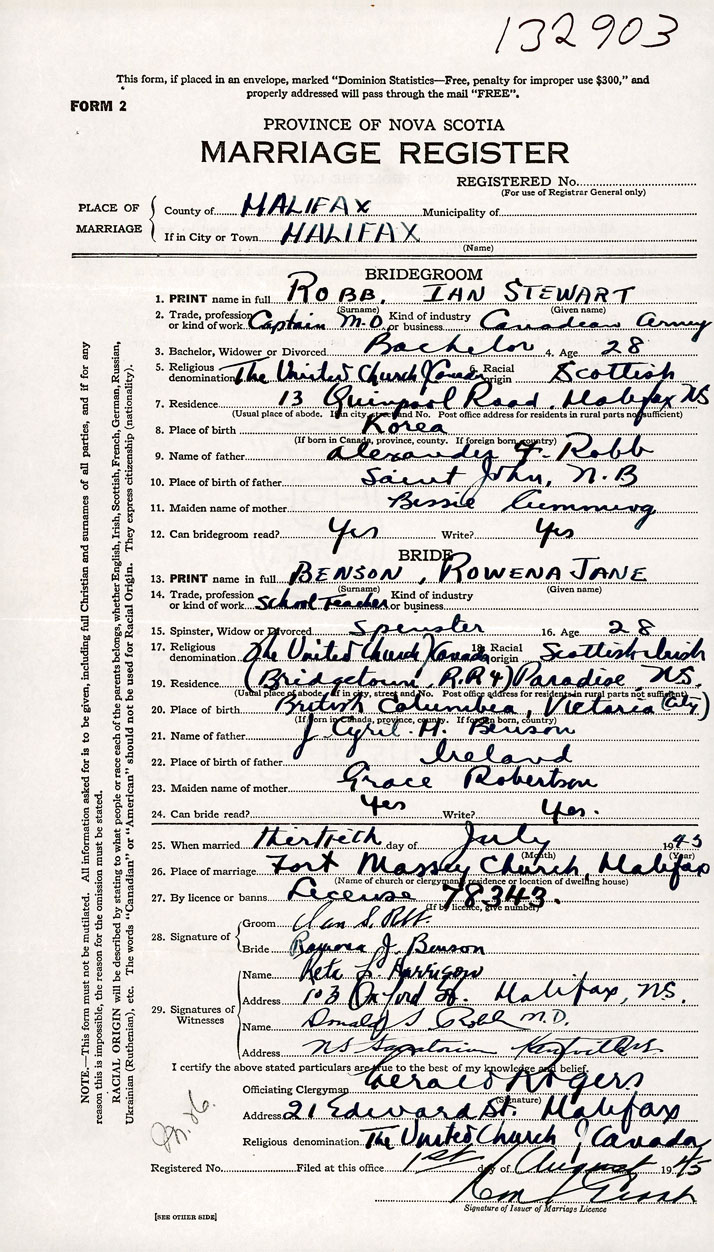 132903
This form, if placed in an envelope, marked "Dominion Statistics—Free, penalty for improper use $300," and
properly addressed will pass through the mail "FREE".
FORM 2
PROVINCE OF NOVA SCOTIA
MARRIAGE REGISTER
REGISTERED No.
(For use of Registrar General only)
PLACE OF MARRIAGE
County of HALIFAX Municipality of
If in City or Town HALIFAX
(Name)
BRIDEGROOM
1. PRINT name in full ROBB, IAN STEWART
(Surname) (Given name)
2. Trade, profession or kind of work Captain M.D. Kind of industry or business Canadian Army
3. Bachelor, Widower or Divorced Bachelor 4. Age 28
5. Religious denomination The United Church / Canada 6. Racial origin Scottish
7. Residence 13 Quinpool Road, Halifax NS
(Usual place of abode. If in city, street and No. Post office address for residents in rural parts not sufficient)
8. Place of birth Korea
(If born in Canada, province, county. If foreign born, country)
9. Name of father Alexander F. Robb
10. Place of birth of father Saint John, N.B
11. Maiden name of mother Bessie Cumming
12. Can bridegroom read? Yes Write? Yes
BRIDE
13. PRINT name in full BENSON, ROWENA JANE
(Surname) (Given name)
14. Trade, profession or kind of work School Teacher Kind of industry or business
15. Spinster, Widow or Divorced Spinster 16. Age 28
17. Religious denomination The United Church / Canada 18. Racial origin Scottish-Irish
19. Residence (Bridgetown, R.R 4) Paradise, N.S.
(Usual place of abode. If in city, street and No. Post office address for residents in rural parts not sufficient)
20. Place of birth British Columbia, Victoria (City)
(If born in Canada, province, county. If foreign born, country)
21. Name of father J. Cyril. H. Benson
22. Place of birth of father Ireland
23. Maiden name of mother Grace Robertson
24. Can bride read? Yes Write? Yes.
25. When married thirtieth day of July 1945
(Month) (Year)
26. Place of marriage Fort Massey Church, Halifax
(Name of church or clergyman's residence or location of dwelling house)
27. By licence or banns License 78343.
(If by licence, give number)
28. Signature of
Groom Ian S. Robb.
Bride Rowena J. Benson
29. Signatures of Witnesses
Name L. Harrison
Address 103 Oxford St. Halifax, NS.
Name Donald S Robb M.D.
Address NS Sanatorium Kentville NS
I certify the above stated particulars are true to the best of my knowledge and belief.
Officiating Clergyman Gerald Rogers
(Signature)
Address 21 Edward St. Halifax
Religious denomination The United Church / Canada
Registered No. Filed at this office 1st day of August 1945
Signature of Issuer of Marriage Licence
[SEE OTHER SIDE]
NOTE.—This form must not be mutilated. All information asked for is to be given, including full Christian and surnames of all parties, and if for any
reason this is impossible, the reason for the omission must be stated.
RACIAL ORIGIN will be described by stating to what people or race each of the parents belongs, whether English, Irish, Scottish, French, German, Russian,
Ukrainian (Ruthenian), etc. The words "Canadian" or "American" should not be used for Racial Origin. They express citizenship (nationality).